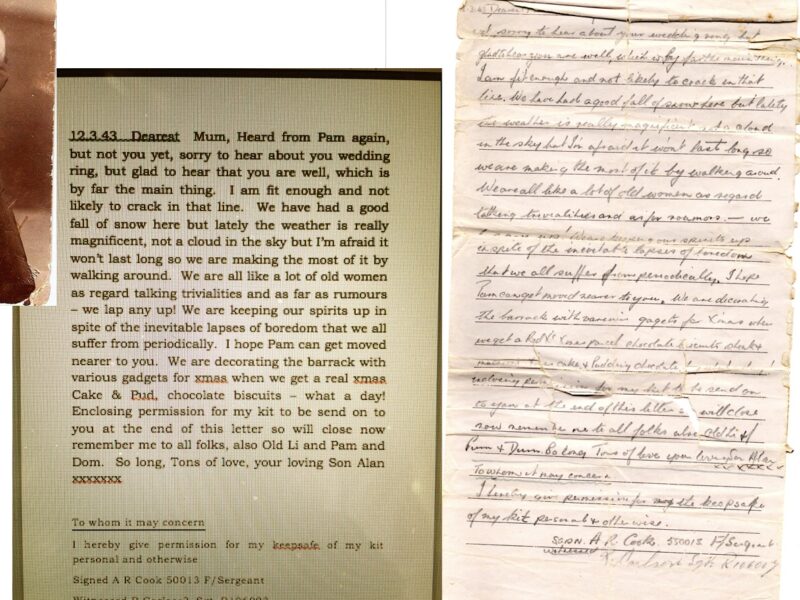 12.3.43 Dearest Mum, Heard from Pam again,
but not you yet, sorry to hear about you wedding
ring, but glad to hear that you are well, which is
by far the main thing. I am fit enough and not
likely to crack in that line. We have had a good
fall of snow here but lately the weather is really
magnificent, not a cloud in the sky but I'm afraid it
won't last long so we are making the most of it by
walking around. We are all like a lot of old women
as regard talking trivialities and as far as rumours
– we lap any up! We are keeping our spirits up in
spite of the inevitable lapses of boredom that we all
suffer from periodically. I hope Pam can get moved
nearer to you. We are decorating the barrack with
various gadgets for xmas when we get a real xmas
Cake & Pud, chocolate biscuits – what a day!
Enclosing permission for my kit to be send on to
you at the end of this letter so will close now
remember me to all folks, also Old Li and Pam and
Dom. So long, Tons of love, your loving Son Alan
xxxxxxx
To whom it may concern
I hereby give permission for my keepsafe of my kit
personal and otherwise
Signed A R Cook 50013 F/Sergeant
sorry to hear about your wedding ring but
glad to hear you are well, which is by far the main thing.
I am fit enough and not likely to crack in that
line. We have had a good fall of snow here but lately
the weather is really magnificent not a cloud
in the sky but I'm afraid it won't last long so
we are making the most of it by walking around.
We are all like a lot of old women as regard
talking trivialities and as for rumors. — we
keeping our spirits up
in spite of the inevitable lapses of boredom
that we all suffer from periodically. I hope
Pam can get moved nearer to you. We are decorating
the barrack with various gagets for Xmas when
we get a Red X Xmas parcel chocolate biscuits
cake & Pudding chocolate
permission for my kit to be send on
to you at the end of this letter so will close
now remember me to all folks also Old Li &
Pum & Dum. So long Tons of love your loving Son Alan
To whom it may concern
I hereby give permission for my the keepsafe
of my kit personal & otherwise.
SGDN. A R Cook 550013 F/Sergeant
witnessed